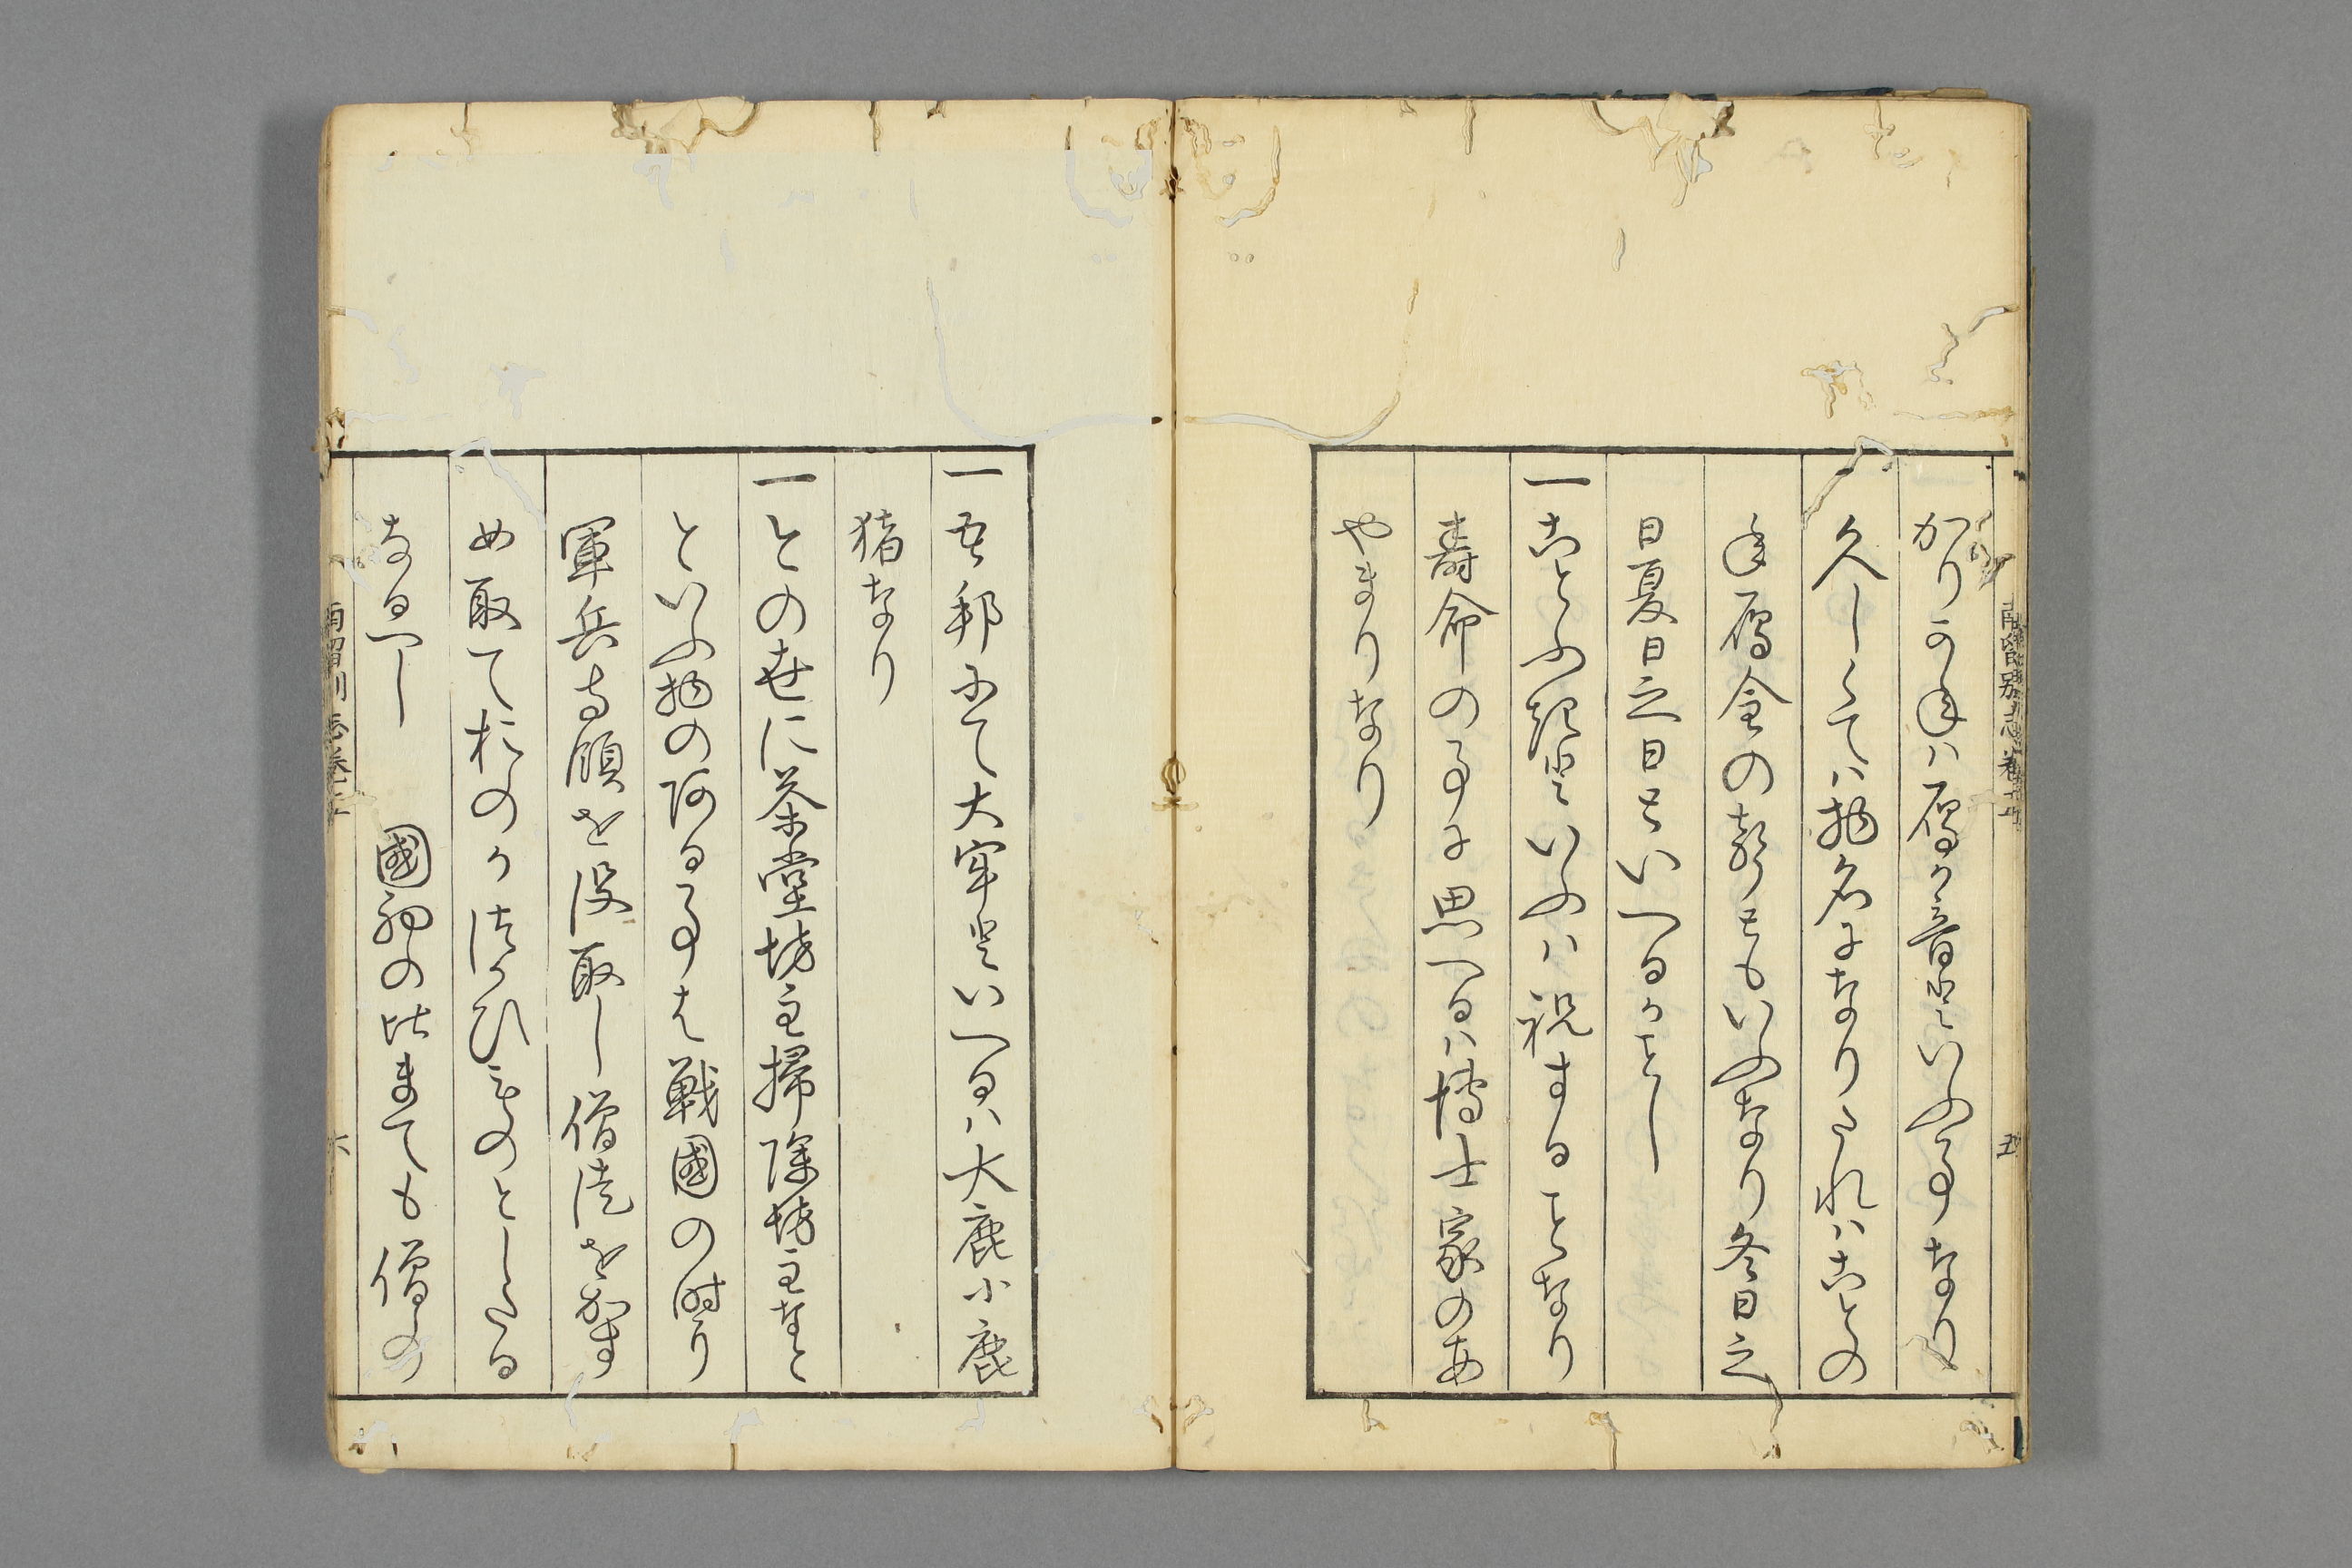 南留別志巻之五
五
かりかねハ鴈か音といふ事なり
久しくてハ物名になりたれハことの
ね鴈金の聲ともいふなり冬日之
日夏日之日といへるかことし
一ことふきといふハ祝することなり
壽命の事に思へるハ博士家のあ
やまりなり
一吾邦にて大牢といへるハ大鹿小鹿
猪なり
一との世に茶堂坊主掃除坊主なと
といふ物のある事は戦國の時より
軍兵寺領を没取し僧徒をかす
め取ておのかつかひものとしたる
なるへし 國初の比まても僧の
南留別志巻之五
六